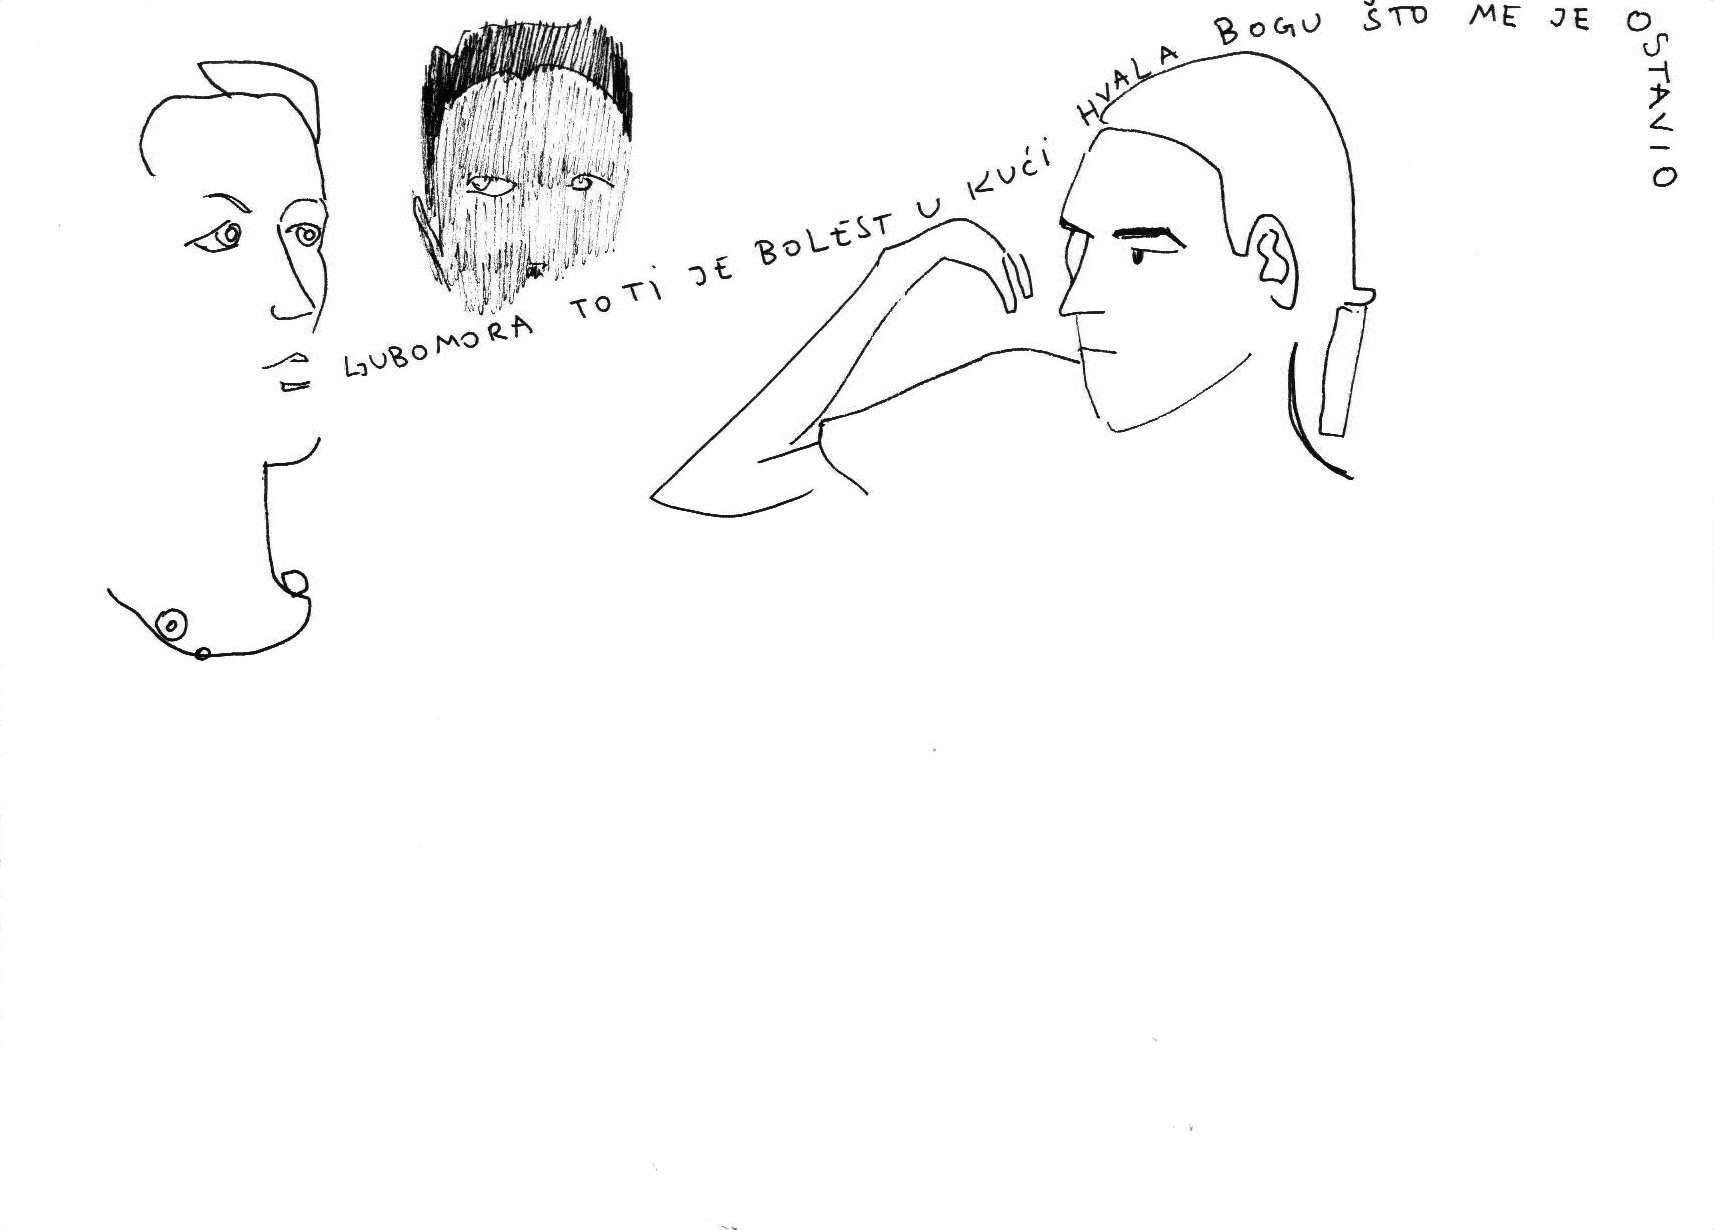 LJUBOMORA TO TI JE BOLEST U KUĆI HVALA BOGU ŠTO ME JE OSTAVIO